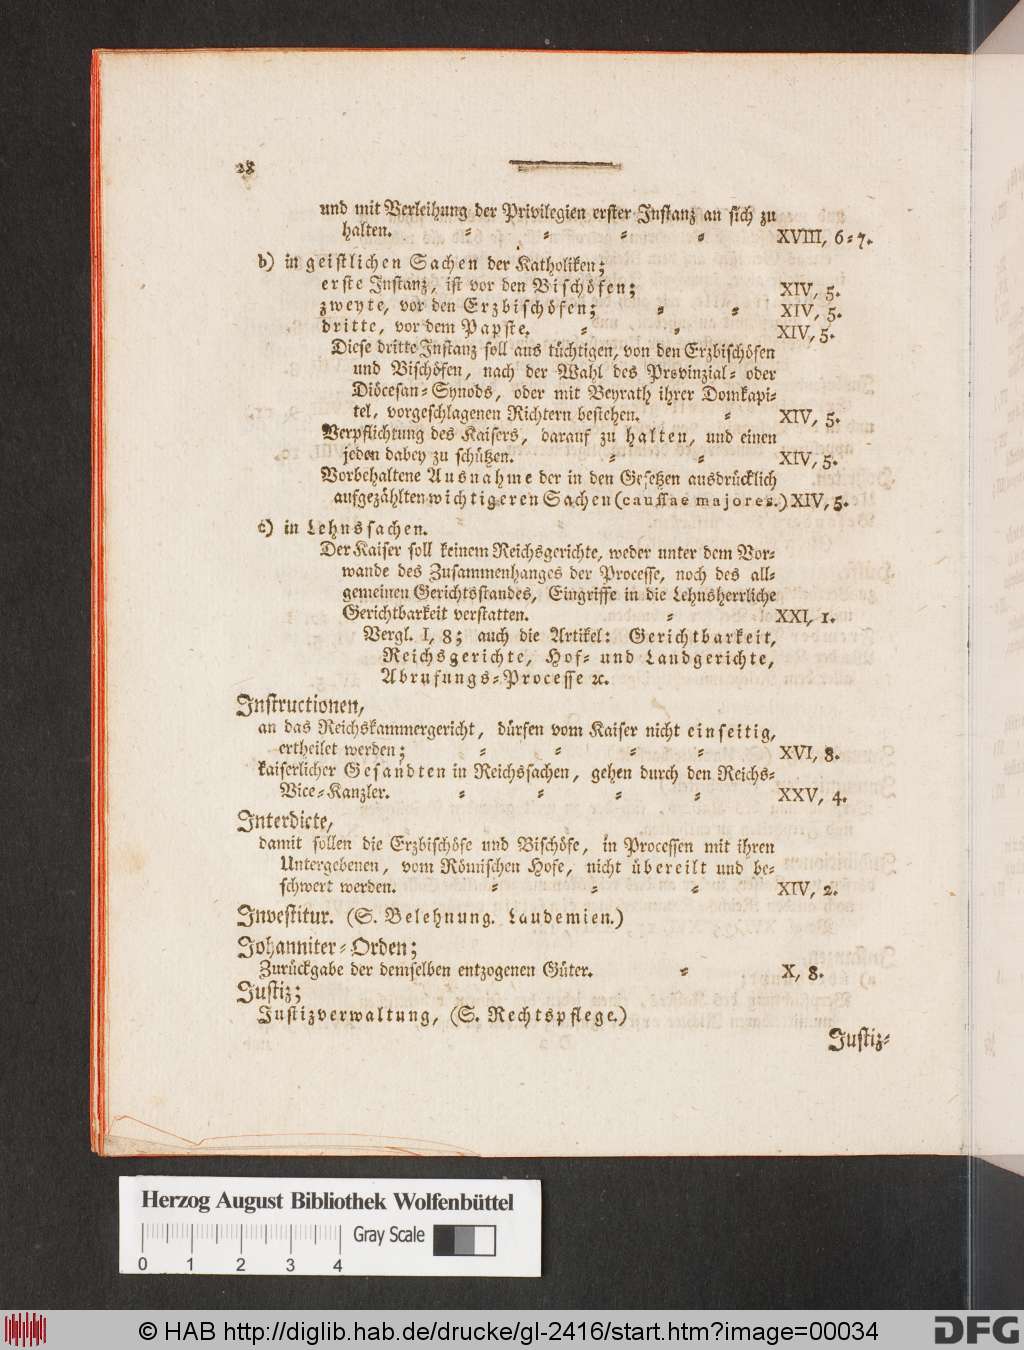 28
und mit Verleihung der Privilegien erster Instanz an sich zu
halten. = = = = XVIII, 6=7.
b) in geistlichen Sachen der Katholiken;
erste Instanz, ist vor den Bischöfen; XIV, 5.
zweyte, vor den Erzbischöfen; = = XIV, 5.
dritte, vor dem Papste. = = XIV, 5.
Diese dritte Instanz soll aus tüchtigen, von den Erzbischöfen
und Bischöfen, nach der Wahl des Provinzial= oder
Diöcesan=Synods, oder mit Beyrath ihrer Domkapi=
tel, vorgeschlagenen Richtern bestehen. = XIV, 5.
Verpflichtung des Kaisers, darauf zu halten, und einen
jeden dabey zu schützen. = = XIV, 5.
Vorbehaltene Ausnahme der in den Gesetzen ausdrücklich
aufgezählten wichtigeren Sachen (caussae majores.) XIV, 5.
c) in Lehnssachen.
Der Kaiser soll keinem Reichsgerichte, weder unter dem Vor=
wande des Zusammenhanges der Processe, noch des all=
gemeinen Gerichtsstandes, Eingriffe in die Lehnsherrliche
Gerichtbarkeit verstatten. = XXI, 1.
Vergl. I, 8; auch die Artikel: Gerichtbarkeit,
Reichsgerichte, Hof= und Landgerichte,
Abrufungs=Processe ꝛc.
Instructionen,
an das Reichskammergericht, dürfen vom Kaiser nicht einseitig,
ertheilet werden; = = = = XVI, 8.
kaiserlicher Gesandten in Reichssachen, gehen durch den Reichs=
Vice=Kanzler. = = = = XXV, 4.
Interdicte,
damit sollen die Erzbischöfe und Bischöfe, in Processen mit ihren
Untergebenen, vom Römischen Hofe, nicht übereilt und be=
schwert werden. = = = XIV, 2.
Investitur. (S. Belehnung. Laudemien.)
Johanniter=Orden;
Zurückgabe der demselben entzogenen Güter. = X, 8.
Justiz;
Justizverwaltung, (S. Rechtspflege.)
Justiz=
Herzog August Bibliothek Wolfenbüttel
Gray Scale
0 1 2 3 4
© HAB http://diglib.hab.de/drucke/gl-2416/start.htm?image=00034
DFG